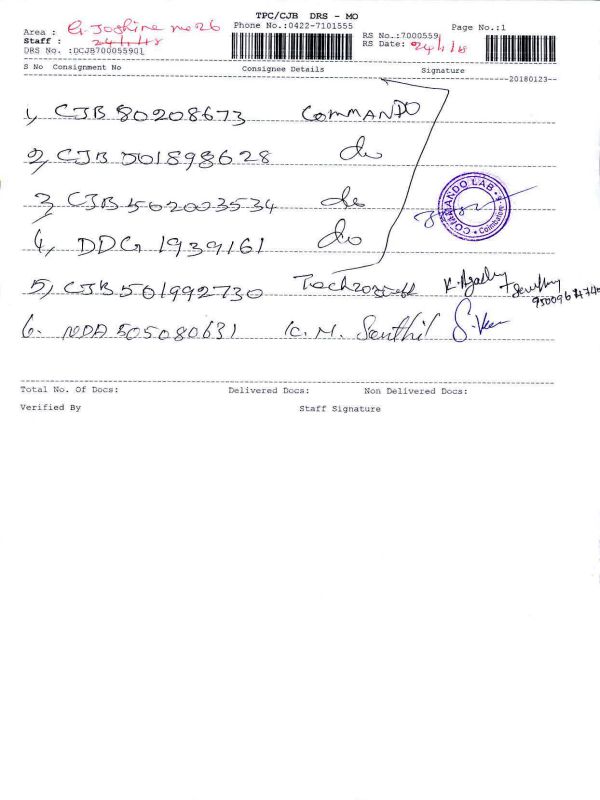 TPC/CJB DRS - MO
Area : G. Joshine mo 26 Phone No.:0422-7101555 Page No.:1
Staff : 24/1/18 RS No.:7000559
DRS No. :DCJB700055901 RS Date: 24/1/18
S No Consignment No Consignee Details Signature
20180123
1, CJB 80208673 COMMANDO
2, CJB 501898628 do
3, CJB 502003534 do
COMMANDO LAB Coimbatore
4, DDG 1939161 do
5, CJB 501992730
6. NDA 505080631 K. M. Senthil S.
Total No. Of Docs: Delivered Docs: Non Delivered Docs:
Verified By Staff Signature